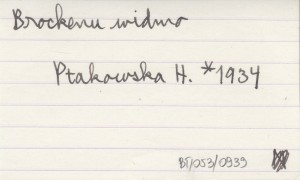 Brockenu widmo
Ptakowska H. *1934
BT/053/0939